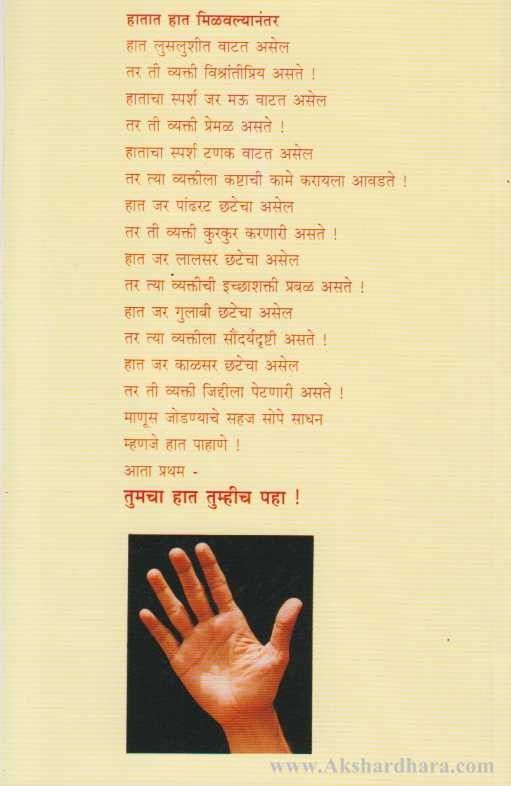 हातात हात मिळवल्यानंतर
हात लुसलुशीत वाटत असेल
तर ती व्यक्ती विश्रांतीप्रिय असते !
हाताचा स्पर्श जर मऊ वाटत असेल
तर ती व्यक्ती प्रेमळ असते !
हाताचा स्पर्श टणक वाटत असेल
तर त्या व्यक्तीला कष्टाची कामे करायला आवडते !
हात जर पांढरट छटेचा असेल
तर ती व्यक्ती कुरकुर करणारी असते !
हात जर लालसर छटेचा असेल
तर त्या व्यक्तीची इच्छाशक्ती प्रबळ असते !
हात जर गुलाबी छटेचा असेल
तर त्या व्यक्तीला सौंदर्यदृष्टी असते !
हात जर काळसर छटेचा असेल
तर ती व्यक्ती जिद्दीला पेटणारी असते !
माणूस जोडण्याचे सहज सोपे साधन
म्हणजे हात पाहाणे !
आता प्रथम -
तुमचा हात तुम्हीच पहा !
www.Akshardhara.com